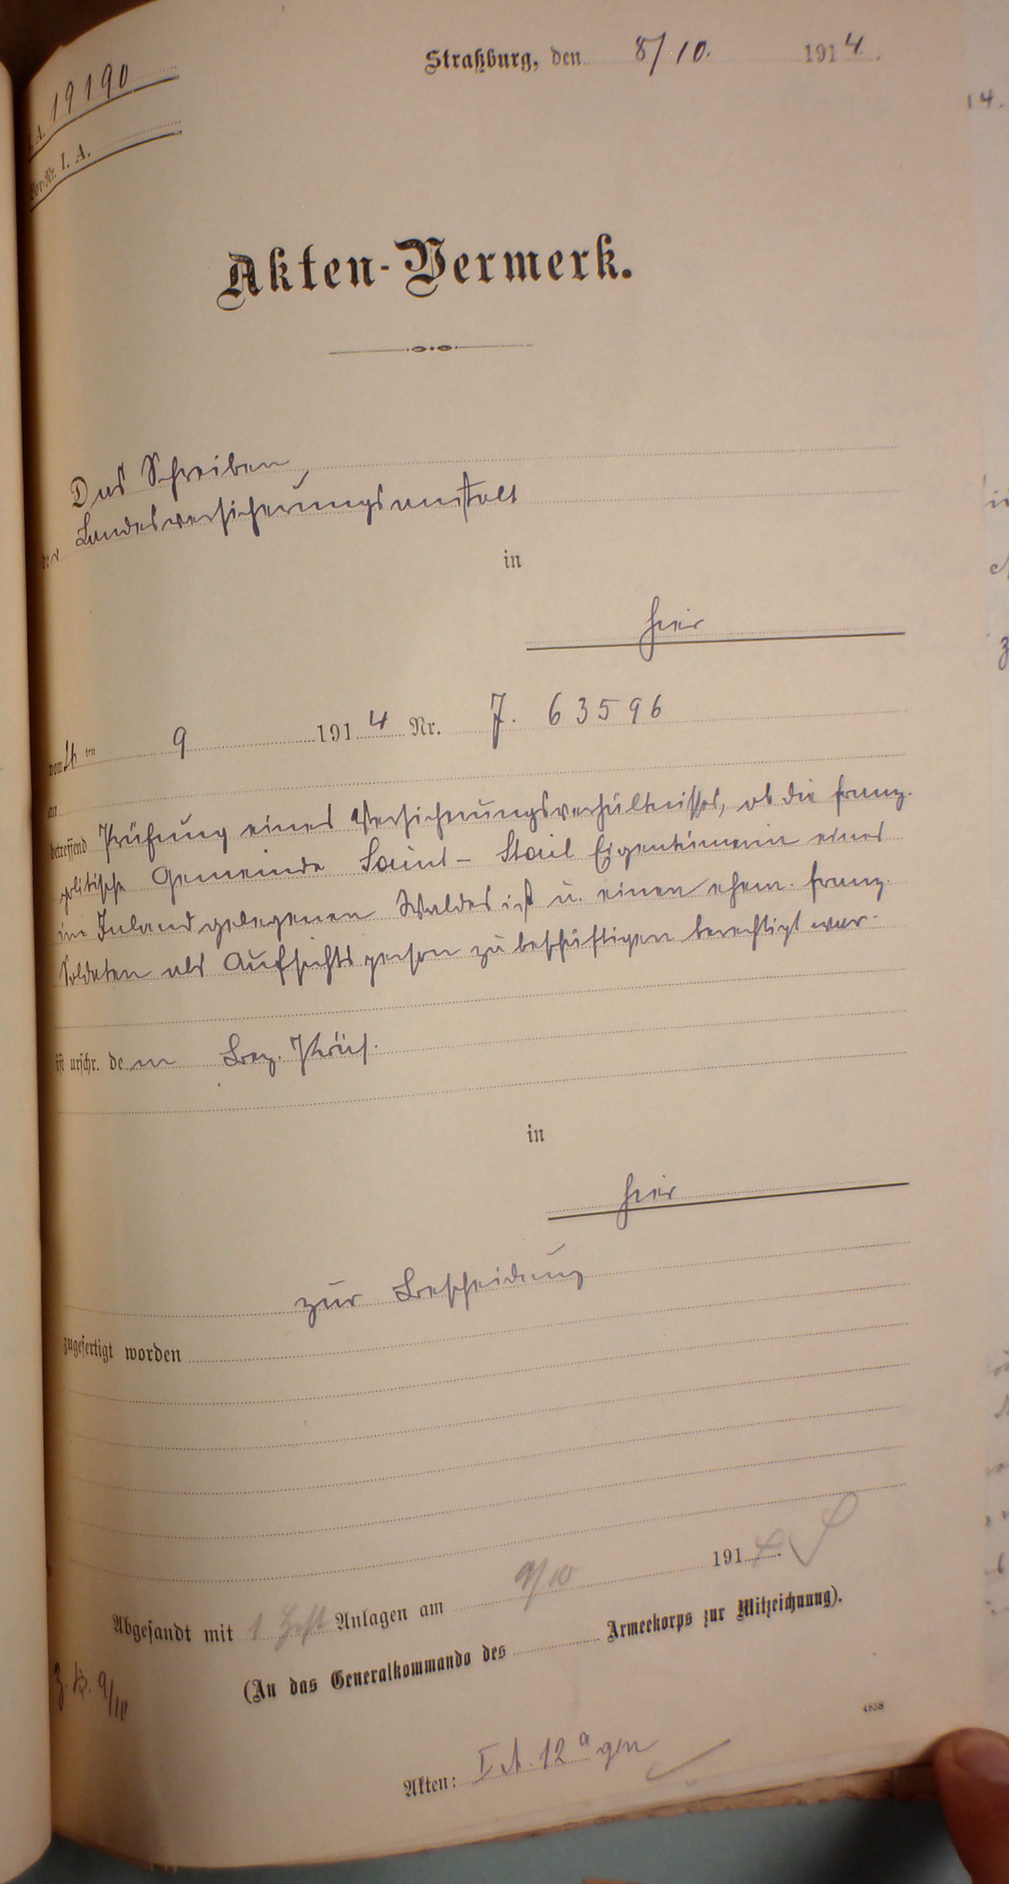 Straßburg, den 8/10. 1914.
I. A. 19190
Vor-Nr. I. A.
Akten-Vermerk.
Das Schreiben
der Landesversicherungsanstalt
in
hier
vom 26 ten 9 1914 Nr. J. 63596
an
betreffend Prüfung eines Versicherungsverhältnisses, ob die franz.
politische Gemeinde Saint-Stail Eigentümerin eines
im Inland gelegenen Waldes ist u. einen ehem. franz.
Soldaten als Aufsichtsperson zu beschäftigen berechtigt war.
ist urschr. dem Bez. Präs.
in
hier
zur Bescheidung
zugefertigt worden
Abgesandt mit 1 Heft Anlagen am 9/10 1914.
(An das Generalkommando des Armeekorps zur Mitzeichnung).
z. K. 9/10
4858
Akten: I A. 12 a gen